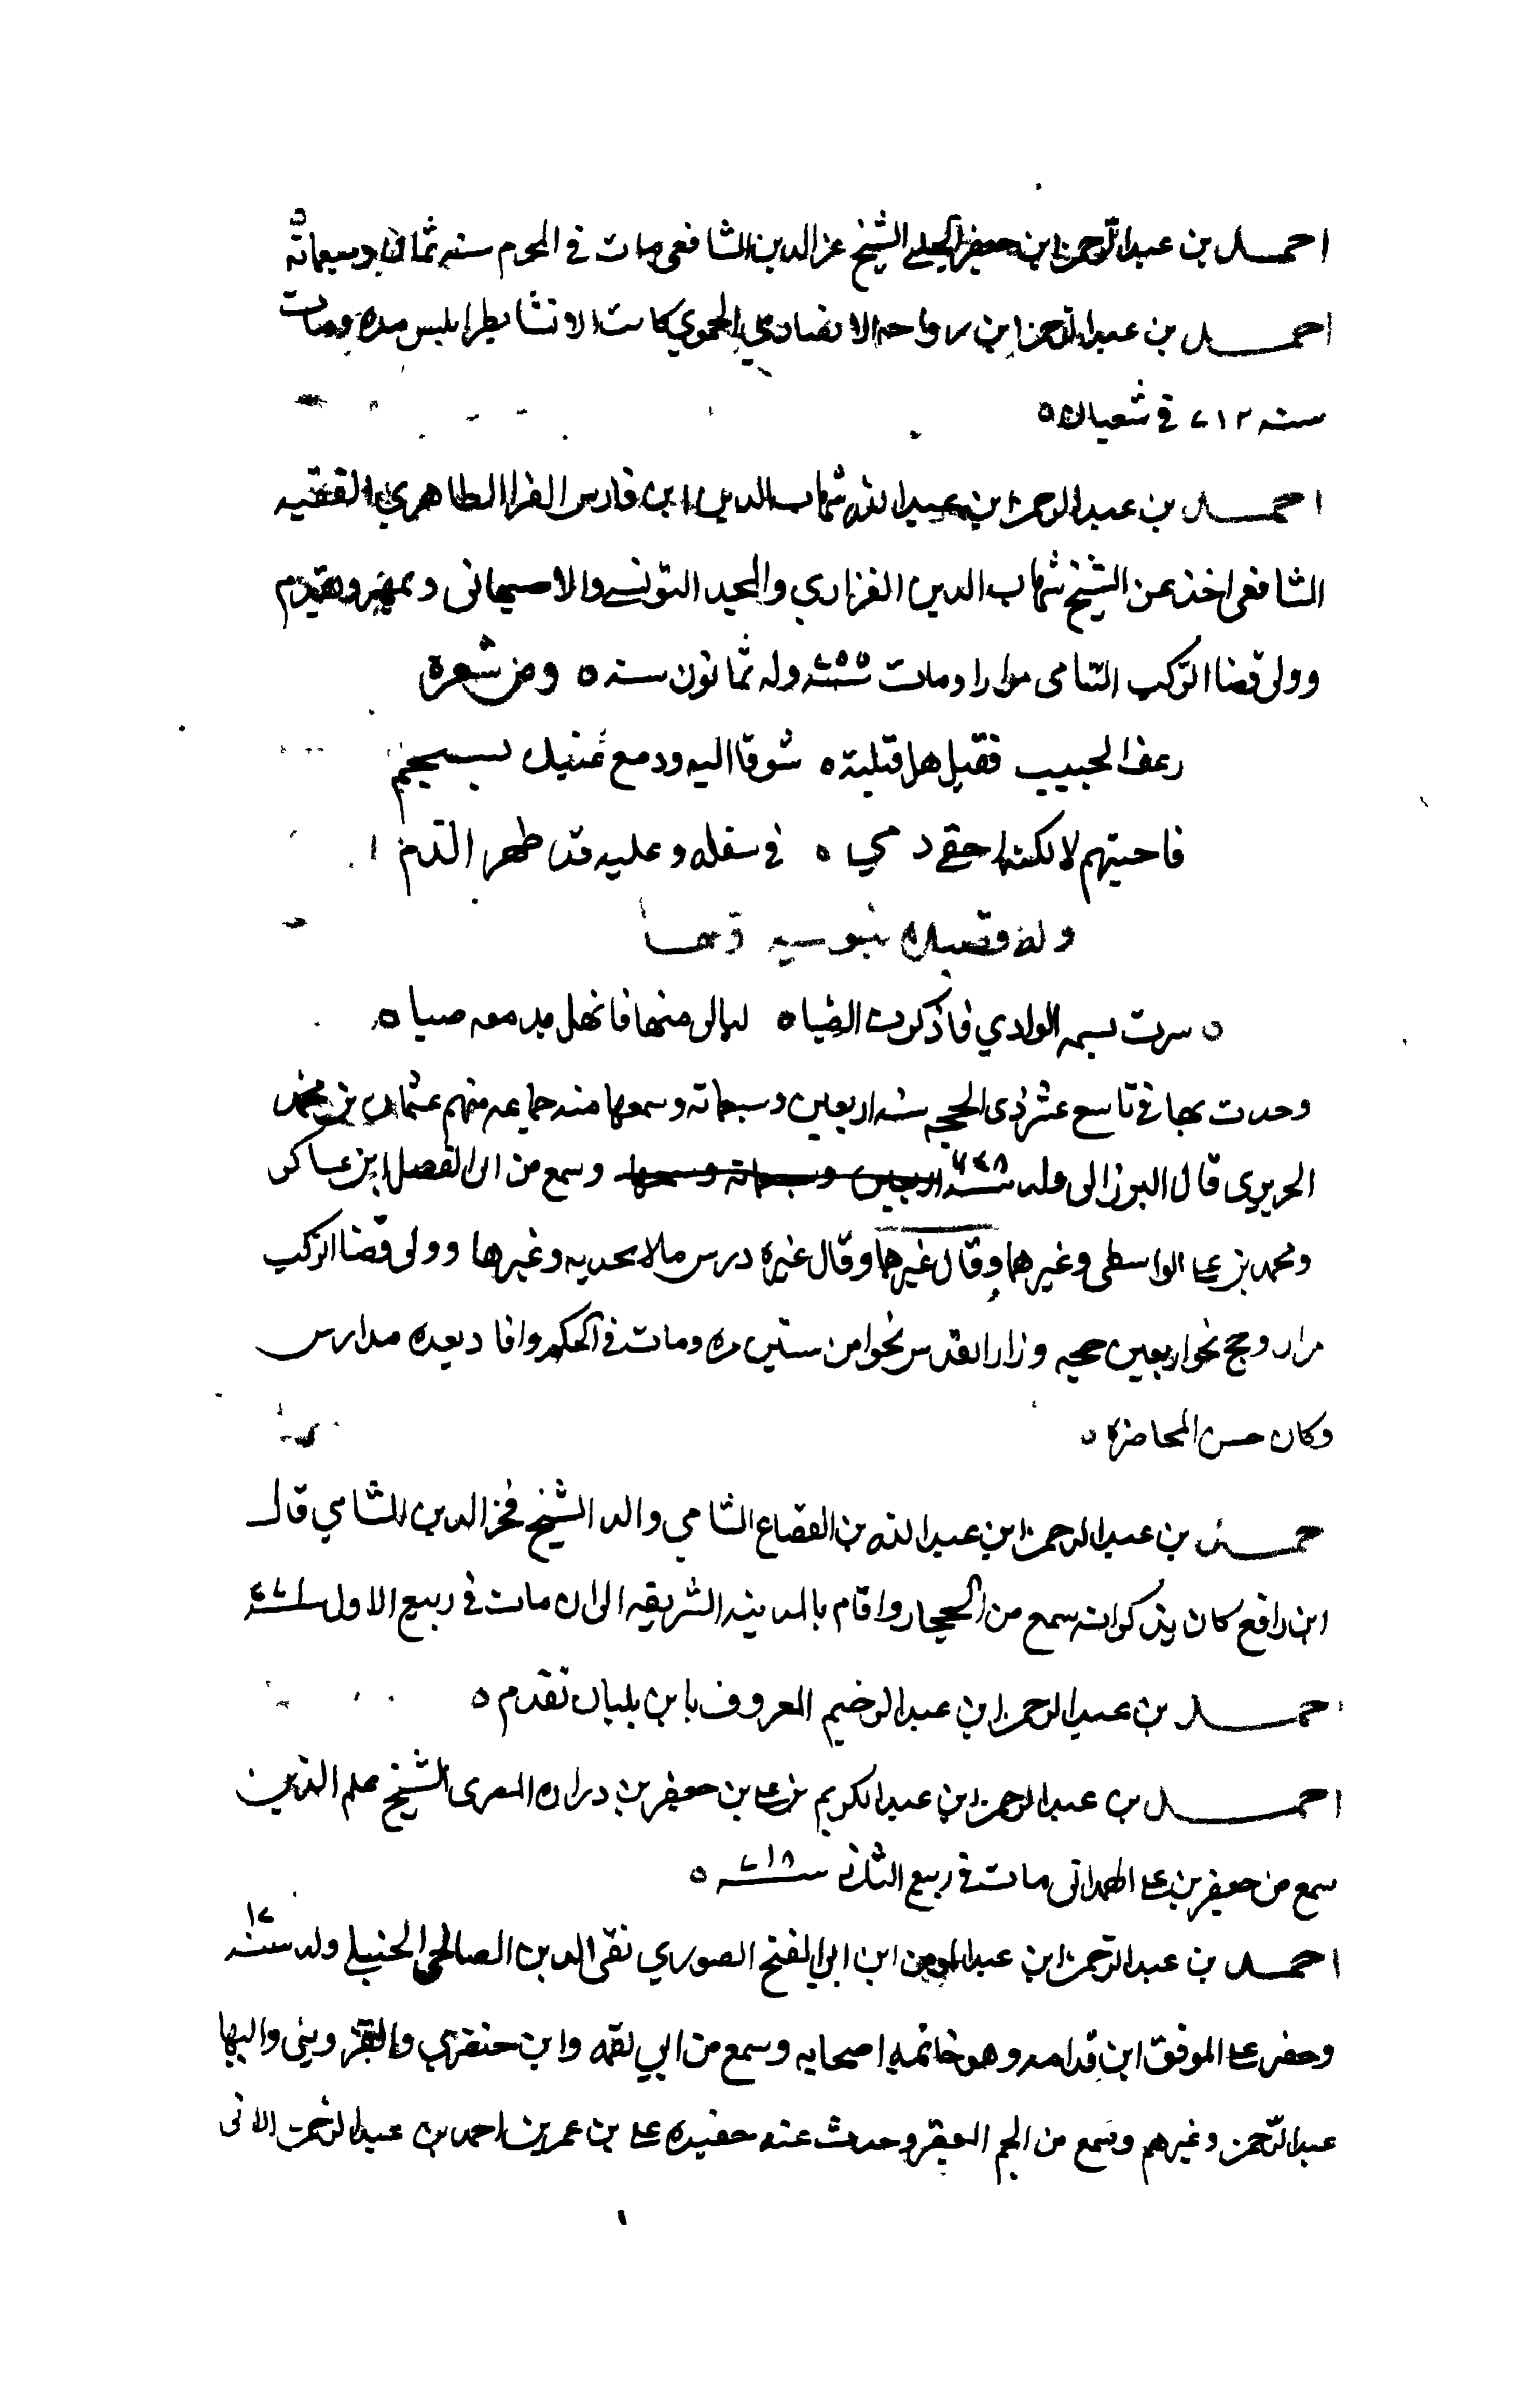 احمد بن عبد الرحمن ابن جعفر الشيخ عز الدين الشافعي مات في المحرم سنه ثمان وسبعماتة
احمد بن عبد الرحمن ابن رواحه الانصاري الحموي كاتب الانشا بطرابلس مده ومات
سنه ٧١٢ في شعبان ه
احمد بن عبد الرحمن ابن عبد الله شهاب الدين ابن فارس الفرا الظاهري الفقيه
الشافعي اخذ عن الشيخ شهاب الدين الفزاري والمجد التونسي والاصبهاني وتمهر وتقدم
وولى قضا الركب الشامي مرارا ومات سنه ٧٥٥ وله ثمانون سنه ه ومن شعره
رعف الحبيب فقيل هل قبلته ه شوقا اليه ودمع عينيك يسجم
فاجبتهم لا لكنه احق دمي ه في سفله وعليه قد ظهر الدم
وله قصيده نبويه
ه سرت نسمه الوادي فاذكرت الصبا ه ليالي منها فانهل مدمعه صبا ه
وحدث بها في تاسع عشر ذي الحجه سنه اربعين وسبعماته وسمعها منه جماعه منهم عثمان بن محمد
الحريري قال البرزالي ولد سنه اربعين وسبعماته وسمعها وسمع من ابن الفضل ابن عساكر
ومحمد بن علي الواسطي وغيرهما وقال غيرهما وقال غيره درس بالامجديه وغيرها وولي قضا الركب
مرار وحج نحو اربعين حجه وزار القدس نحوا من ستين مره ومات في الحكم وافاد بعده مدارس
وكان حسن المحاضره ه
حمد بن عبد الرحمن ابن عبد الله بن القصاع الشامي والد الشيخ فخر الدين الشامي قال
ابن رافع كان يذكر انه سمع من الحجار واقام بالمدينه الشريفه الى ان مات في ربيع الاول
احمد بن عبد الرحمن ابن عبد الرحيم المعروف بابن بلبان تقدم ه
احمد بن عبد الرحمن ابن عبد الكريم بن علي بن جعفر بن دراده المصري الشيخ علم الدين
سمع من جعفر بن علي الهمداني مات في ربيع الثاني سنه ٧١٨ ه
احمد بن عبد الرحمن ابن عبد المومن ابن ابي الفتح الصوري تقي الدين الصالحي الحنبلي ولد سنه ١٧
وحضر على الموفق ابن قدامه وهو خاتمه اصحابه وسمع من ابي لقمه وابن صصري والقزويني والبها
عبد الرحمن وغيرهم وسمع من الجم الغفير وحدث عنه حفيده علي بن عمر بن احمد بن عبد الرحمن الاتي